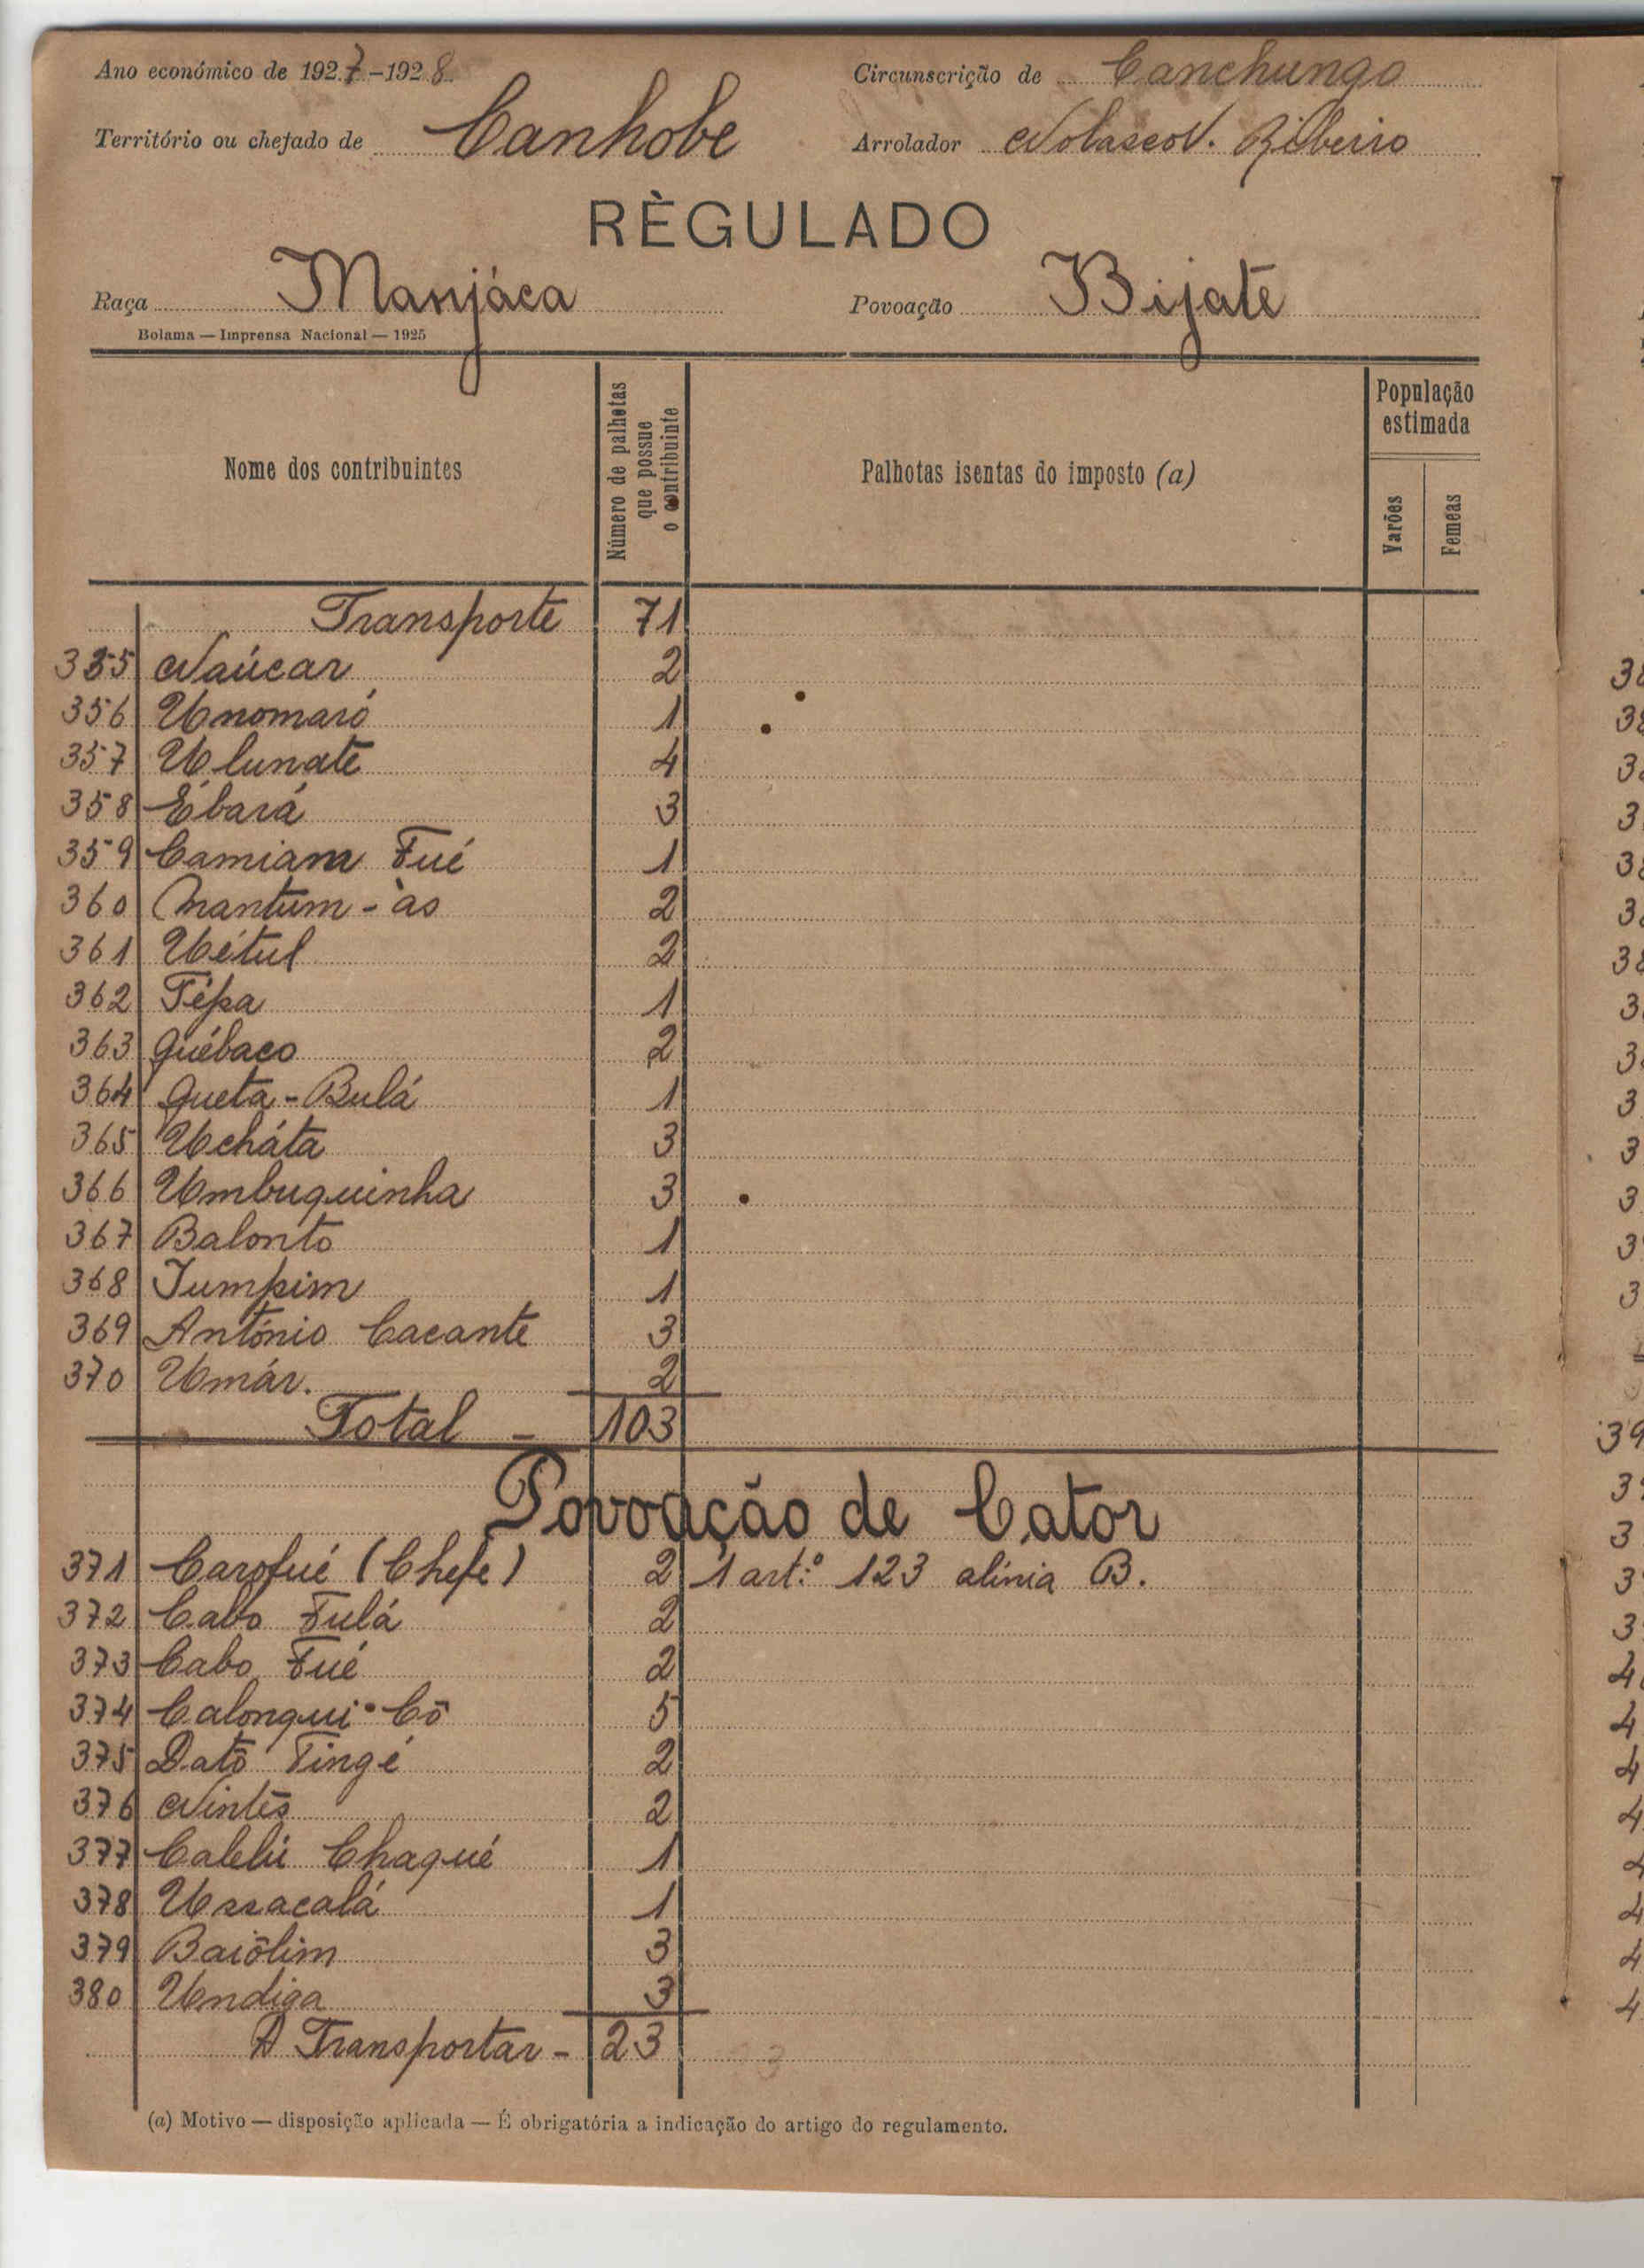 Ano económico de 1927-1928. Circunscrição de Canchungo
Território ou chefado de Canhobe Arrolador Nolasco N. Ribeiro
RÈGULADO
Raça Manjáca Povoação Bijate
Bolama — Imprensa Nacional — 1925
Nome dos contribuintes Número de palhotas que possue o contribuinte Palhotas isentas do imposto (a) População estimada Varões Femeas
Transporte 71
355 Naúcar 2
356 Unomaró 1
357 Ulunate 4
358 Ébará 3
359 Camiam Fué 1
360 Nantum-às 2
361 Uétul 2
362 Tépa 1
363 Québaco 2
364 Queta-Bulá 1
365 Ucháta 3
366 Umbuquinha 3
367 Balonto 1
368 Jumpim 1
369 António Cacante 3
370 Umár. 2
Total - 103
Povoação de Cator
371 Carofué (Chefe) 2 1 art.º 123 alínia B.
372 Cabo Fulá 2
373 Cabo Fué 2
374 Calonqui-Cô 5
375 Datô Tingé 2
376 Nintês 2
377 Chaqué 1
378 Ussacalá 1
379 Baiôlim 3
380 Undiga 3
A Transportar - 23
(a) Motivo — disposição aplicada — É obrigatória a indicação do artigo do regulamento.